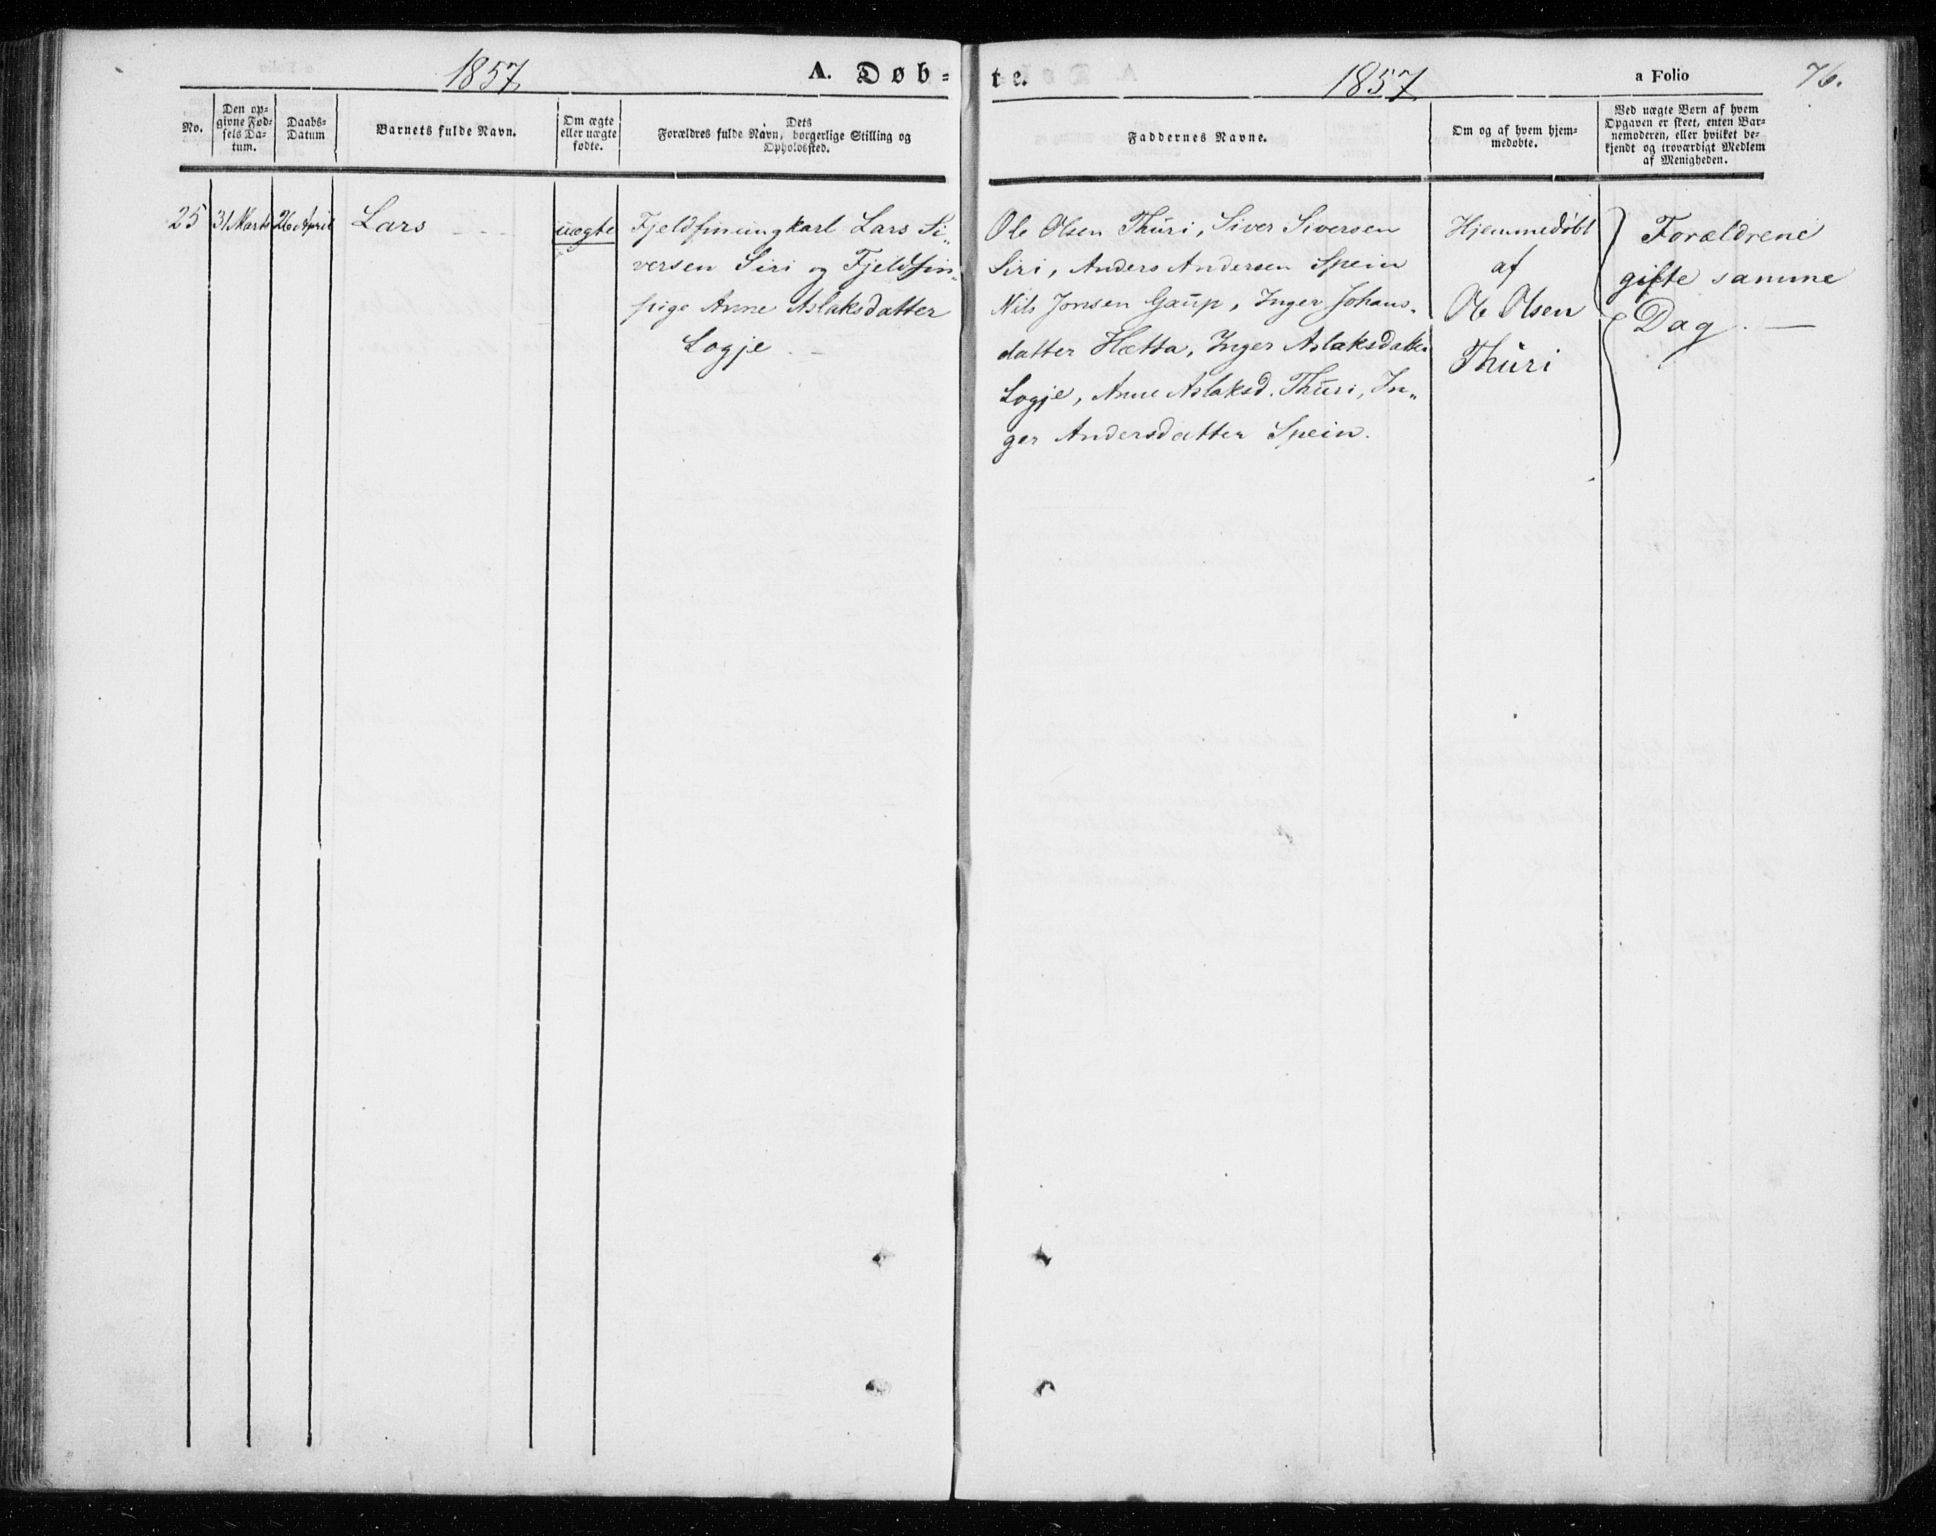 1857
A. Døb-
te.
1857
a Folio
76.
No.
Den op-
givne Fød-
sels Da-
tum.
Daabs-
Datum
Barnets fulde Navn.
Om ægte
eller uægte
fødte.
Dets
Forældres fulde Navn, borgerlige Stilling og
Opholdssted.
Faddernes Navne.
Om og af hvem hjem-
medøbte.
Ved uægte Børn af hvem
Opgaven er skeet, enten Bar-
nemoderen, eller hvilket be-
kjendt og troværdigt Medlem
af Menigheden.
25
31 Marts
26 April
Lars
uægte
Fjeldfinungkarl Lars Si-
versen Siri og Fjeldfin-
pige Anne Aslaksdatter
Logje.
Ole Olsen Thuri, Siver Siversen
Siri, Anders Andersen Spein
Nils Jonsen Gaup, Inger Johans-
datter Hætta, Inger Aslaksdatter
Logje, Anne Aslaksd. Thuri, In-
ger Andersdatter Spein.
Hjemmedøbt
af
Ole Olsen
Thuri
Forældrene
gifte samme
Dag.